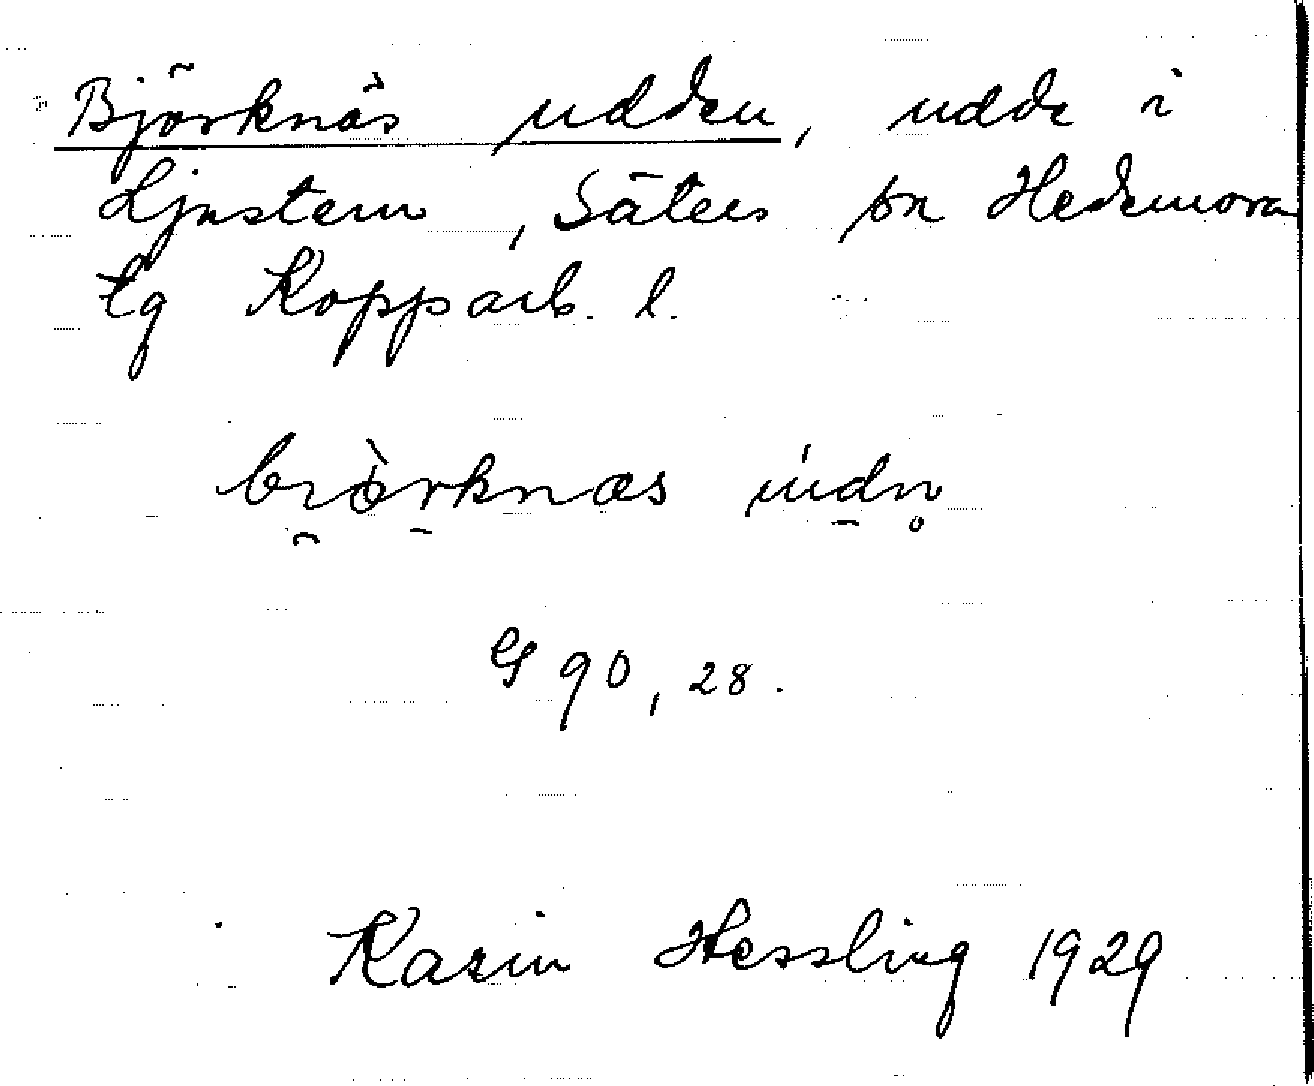 Björknäs udden, udde i
Ljustern, Säters sn Hedemora
tg Kopparb. l.
G 90, 28.
Karin Hessling 1929